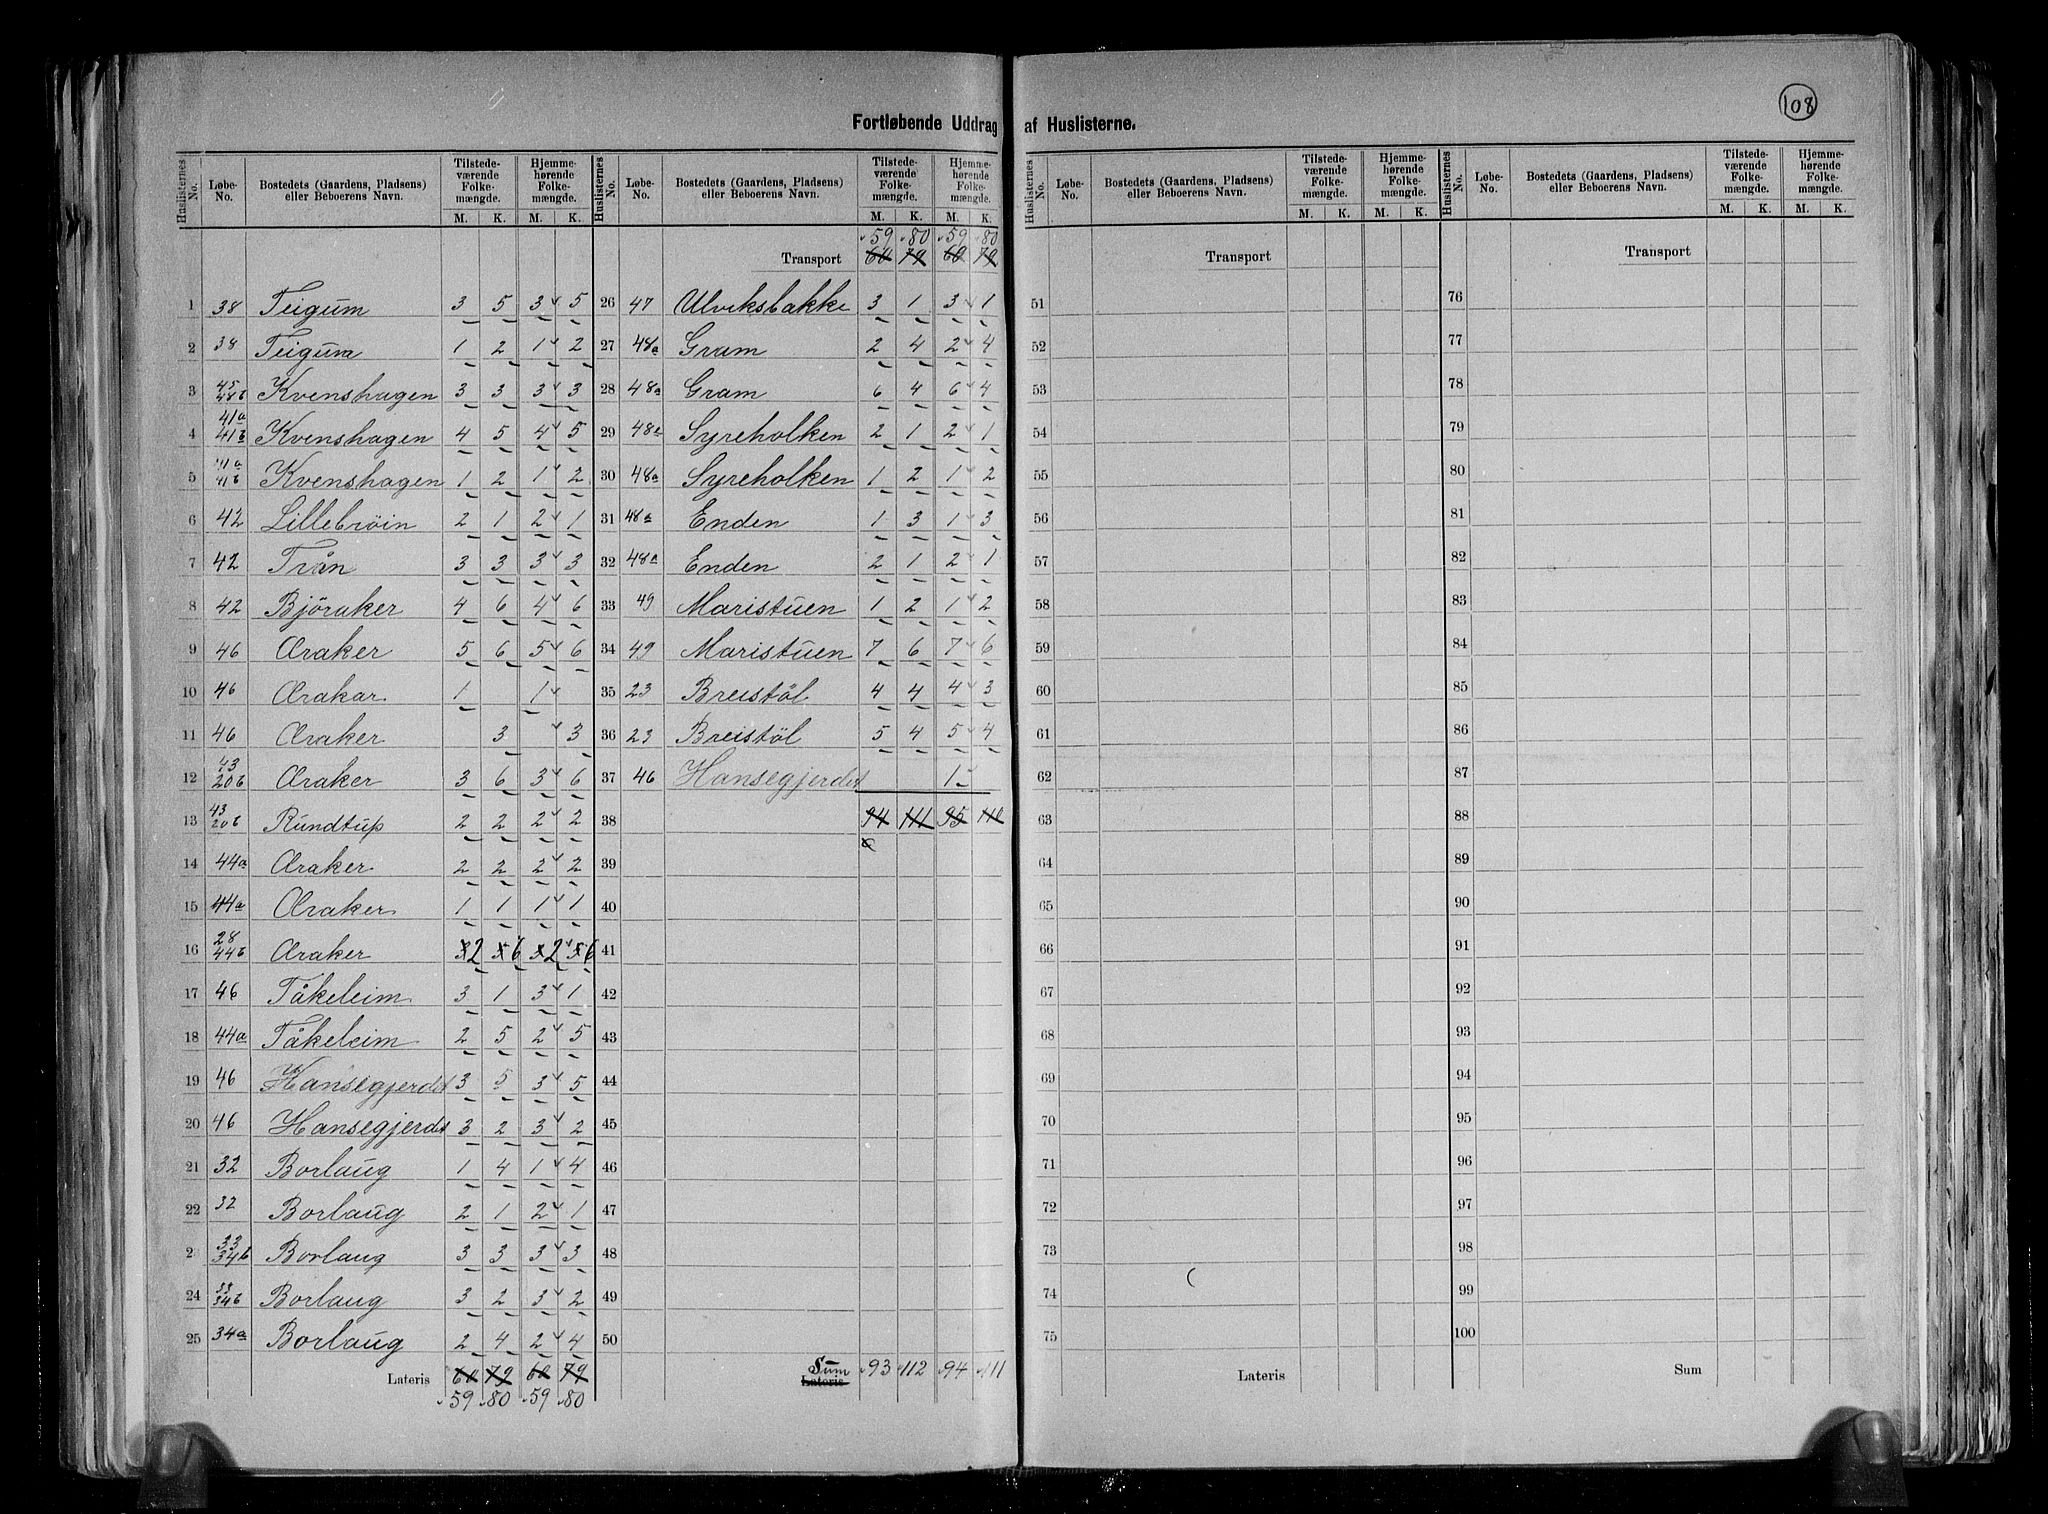 108
Fortløbende Uddrag af Huslisterne.
Huslisternes No. | Løbe-No. | Bostedets (Gaardens, Pladsens) eller Beboerens Navn. | Tilstedeværende Folkemængde. M. K. | Hjemmehørende Folkemængde. M. K.
1 38 Teigum 3 5 3 5
2 38 Teigum 1 2 1 2
3 45 48b Kvenshagen 3 3 3 3
4 41a 41b Kvenshagen 4 5 4 5
5 41a 41b Kvenshagen 1 2 1 2
6 42 Lillebröin 2 1 2 1
7 42 Trån 3 3 3 3
8 42 Björaker 4 6 4 6
9 46 Æraker 5 6 5 6
10 46 Ærakar 1 1
11 46 Æraker 3 3
12 43 20b Æraker 3 6 3 6
13 43 20b Rundtup 2 2 2 2
14 44a Æraker 2 2 2 2
15 44a Æraker 1 1 1 1
16 28 44b Æraker 2 6 2 6
17 46 Tåkeleim 3 1 3 1
18 44a Tåkeleim 2 5 2 5
19 46 Hansegjerdet 3 5 3 5
20 46 Hansegjerdet 3 2 3 2
21 32 Borlaug 1 4 1 4
22 32 Borlaug 2 1 2 1
2 33 34b Borlaug 3 3 3 3
24 33 34b Borlaug 3 2 3 2
25 34a Borlaug 2 4 2 4
Lateris 60 79 60 79
59 80 59 80
Huslisternes No. | Løbe-No. | Bostedets (Gaardens, Pladsens) eller Beboerens Navn. | Tilstedeværende Folkemængde. M. K. | Hjemmehørende Folkemængde. M. K.
59 80 59 80
Transport 60 79 60 79
26 47 Ulviksbakke 3 1 3 1
27 48a Gram 2 4 2 4
28 48a Gram 6 4 6 4
29 48a Syreholken 2 1 2 1
30 48a Syreholken 1 2 1 2
31 48a Enden 1 3 1 3
32 48a Enden 2 1 2 1
33 49 Maristuen 1 2 1 2
34 49 Maristuen 7 6 7 6
35 23 Breistöl 4 4 4 3
36 23 Breistöl 5 4 5 4
37 46 Hansegjerdet 1
38 94 111 95 110
39
40
41
42
43
44
45
46
47
48
49
50
Sum Lateris 93 112 94 111
Huslisternes No. | Løbe-No. | Bostedets (Gaardens, Pladsens) eller Beboerens Navn. | Tilstedeværende Folkemængde. M. K. | Hjemmehørende Folkemængde. M. K.
Transport
51
52
53
54
55
56
57
58
59
60
61
62
63
64
65
66
67
68
69
70
71
72
73
74
75
Lateris
Huslisternes No. | Løbe-No. | Bostedets (Gaardens, Pladsens) eller Beboerens Navn. | Tilstedeværende Folkemængde. M. K. | Hjemmehørende Folkemængde. M. K.
Transport
76
77
78
79
80
81
82
83
84
85
86
87
88
89
90
91
92
93
94
95
96
97
98
99
100
Sum